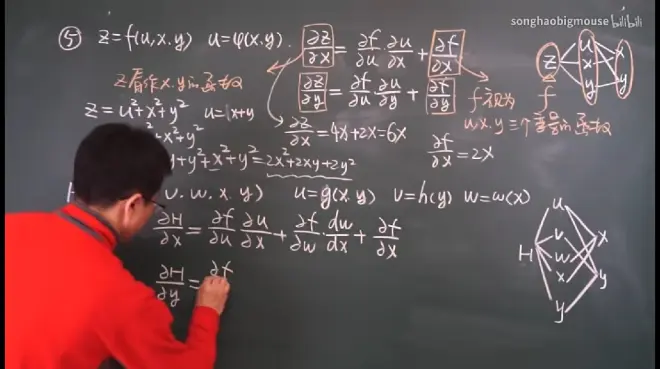 songhaobigmouse bilibili
⑤ z=f(u,x.y) u=φ(x.y). ∂z/∂x = ∂f/∂u·∂u/∂x + ∂f/∂x
z看作x.y的函数
∂z/∂y = ∂f/∂u ∂u/∂y + ∂f/∂y
f视为
u x.y 三个变量的函数
z u x y x y
f
z=u²+x²+y² u=x+y
∂z/∂x=4x+2x=6x
²+x²+y²
y+y²+x²+y²=2x²+2xy+2y²
∂f/∂x=2x
H u. w. x. y) u=g(x.y) v=h(y) w=w(x)
∂H/∂x = ∂f/∂u ∂u/∂x + ∂f/∂w·dw/dx + ∂f/∂x
∂H/∂y = ∂f
H u v w x y x y